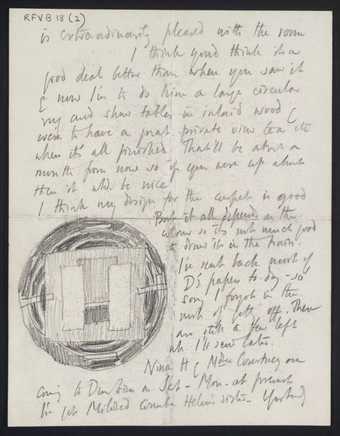 RFVB 18 (2)
is extraordinarily pleased with the room
I think you'd think it a
good deal better than when you saw it
& now I'm to do him a large circular
rug and show tables in inlaid wood &
we're to have a great private view tea etc
when it's all finished. That'll be about a
month from now so if you were up about
then it wld be nice
I think my design for the carpet is good
But it all depends on the
colour so it's not much good
to draw it in the
I've sent back most of
D's papers to-day - so
sorry I forgot in the
rush of getting off. There
are still a few left
wh I'll send later.
Nina H & Mme are
coming to Durbins on Sat - Mon. at present
I've got Mildred Helen's sister